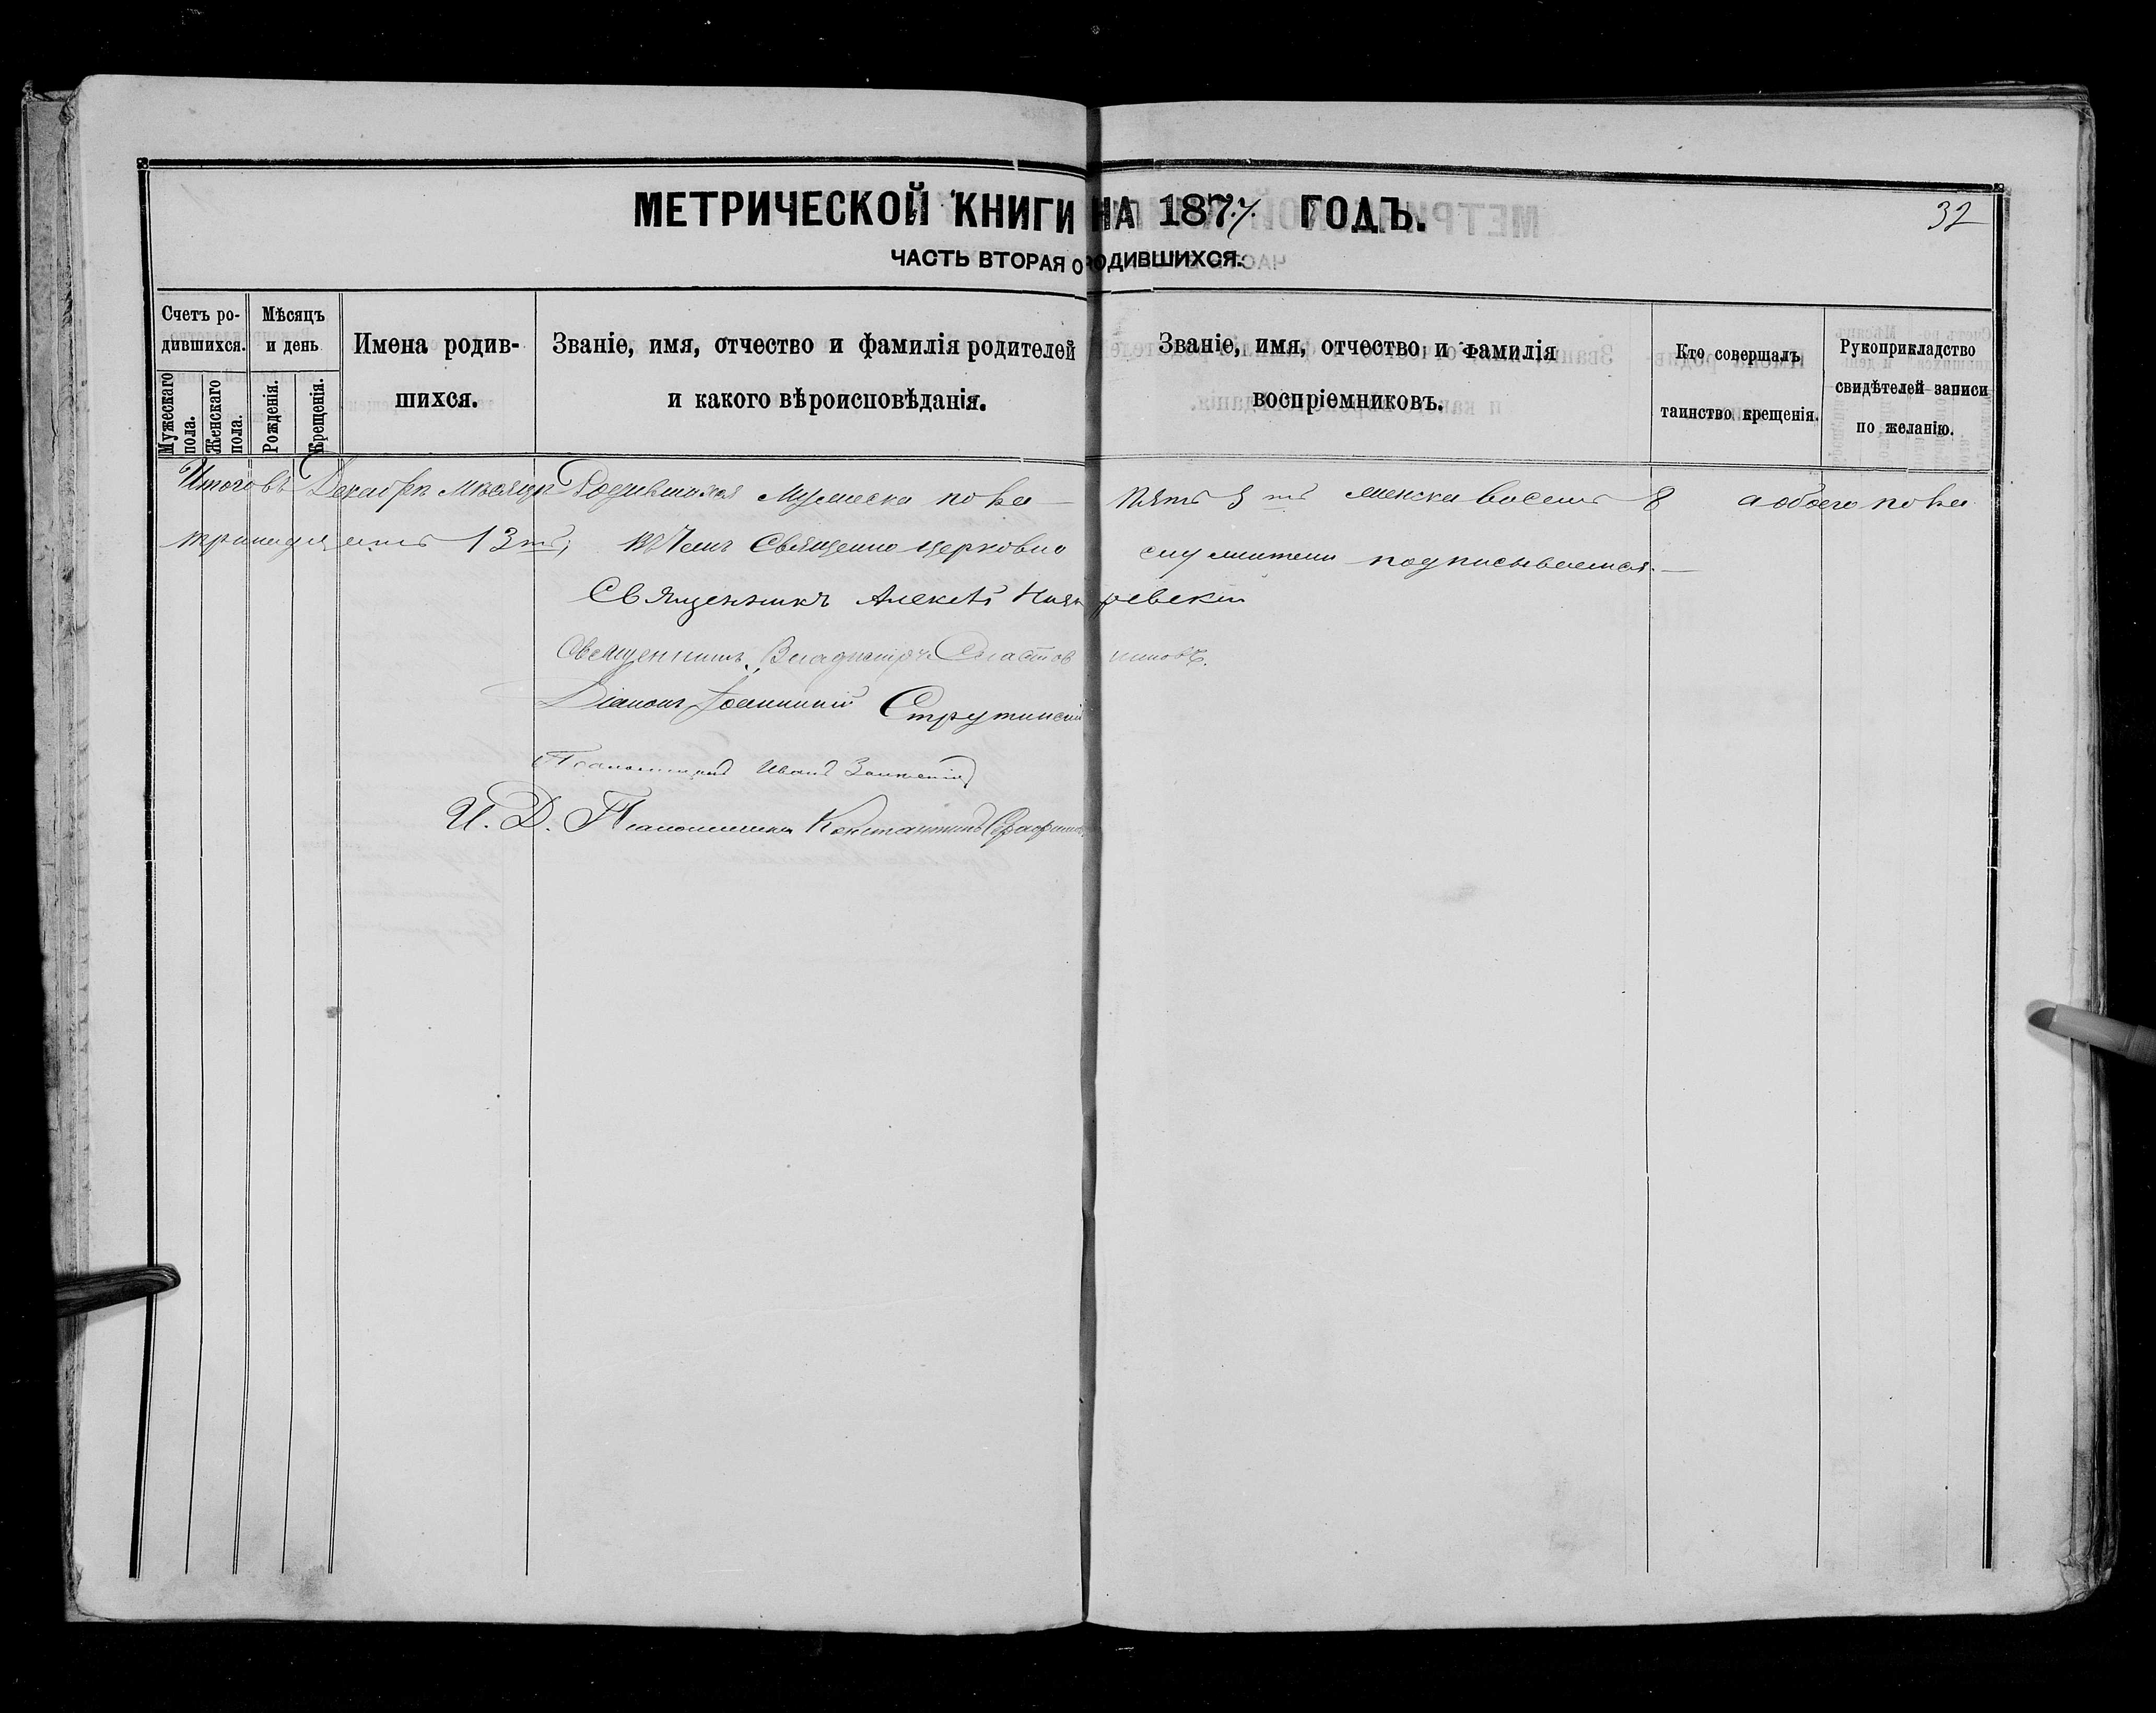 МЕТРИЧЕСКОЙ КНИГИ НА 1877. ГОДЪ.
32
ЧАСТЬ ВТОРАЯ О РОДИВШИХСЯ.
Счетъ ро-
дившихся.
Мужескаго пола.
Женскаго пола.
Мѣсяцъ
и день
Рожденія.
Крещенія.
Имена родив-
шихся.
Званіе, имя, отчество и фамилія родителей
и какого вѣроисповѣданія.
Званіе, имя, отчество и фамилія
воспріемниковъ.
Кто совершалъ
таинство крещенія.
Рукоприкладство
свидѣтелей записи
по желанію.
Итого въ Декабрѣ мѣсяцѣ Родившихся мужеска пола — пять 5ть женска восемь 8 а обоего пола
тринадцать 13ть; въ чемъ Священно церковно служители подписываемся. —
Священникъ Алексѣй
Священникъ Владиміръ
Діаконъ Іоанникій Струтинскій
Псаломщикъ Иванъ
И. Д. Псаломщика Константинъ